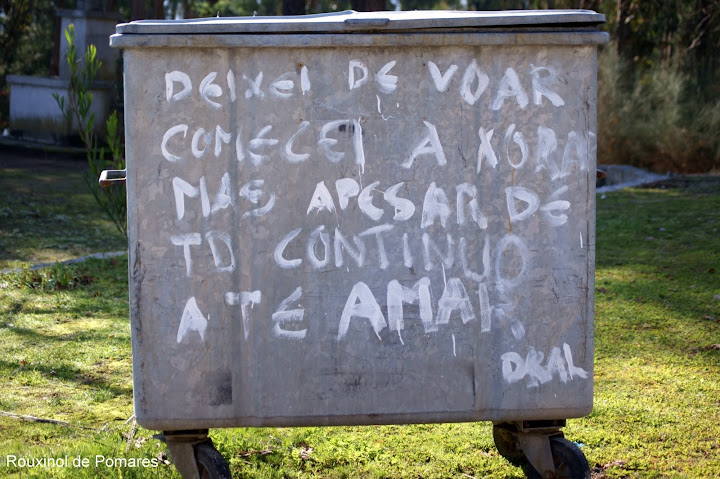 DEIXEI DE VOAR
COMECEI A XORAR
MAS APESAR DE
TD CONTINUO
ATÉ AMAR
Rouxinol de Pomares